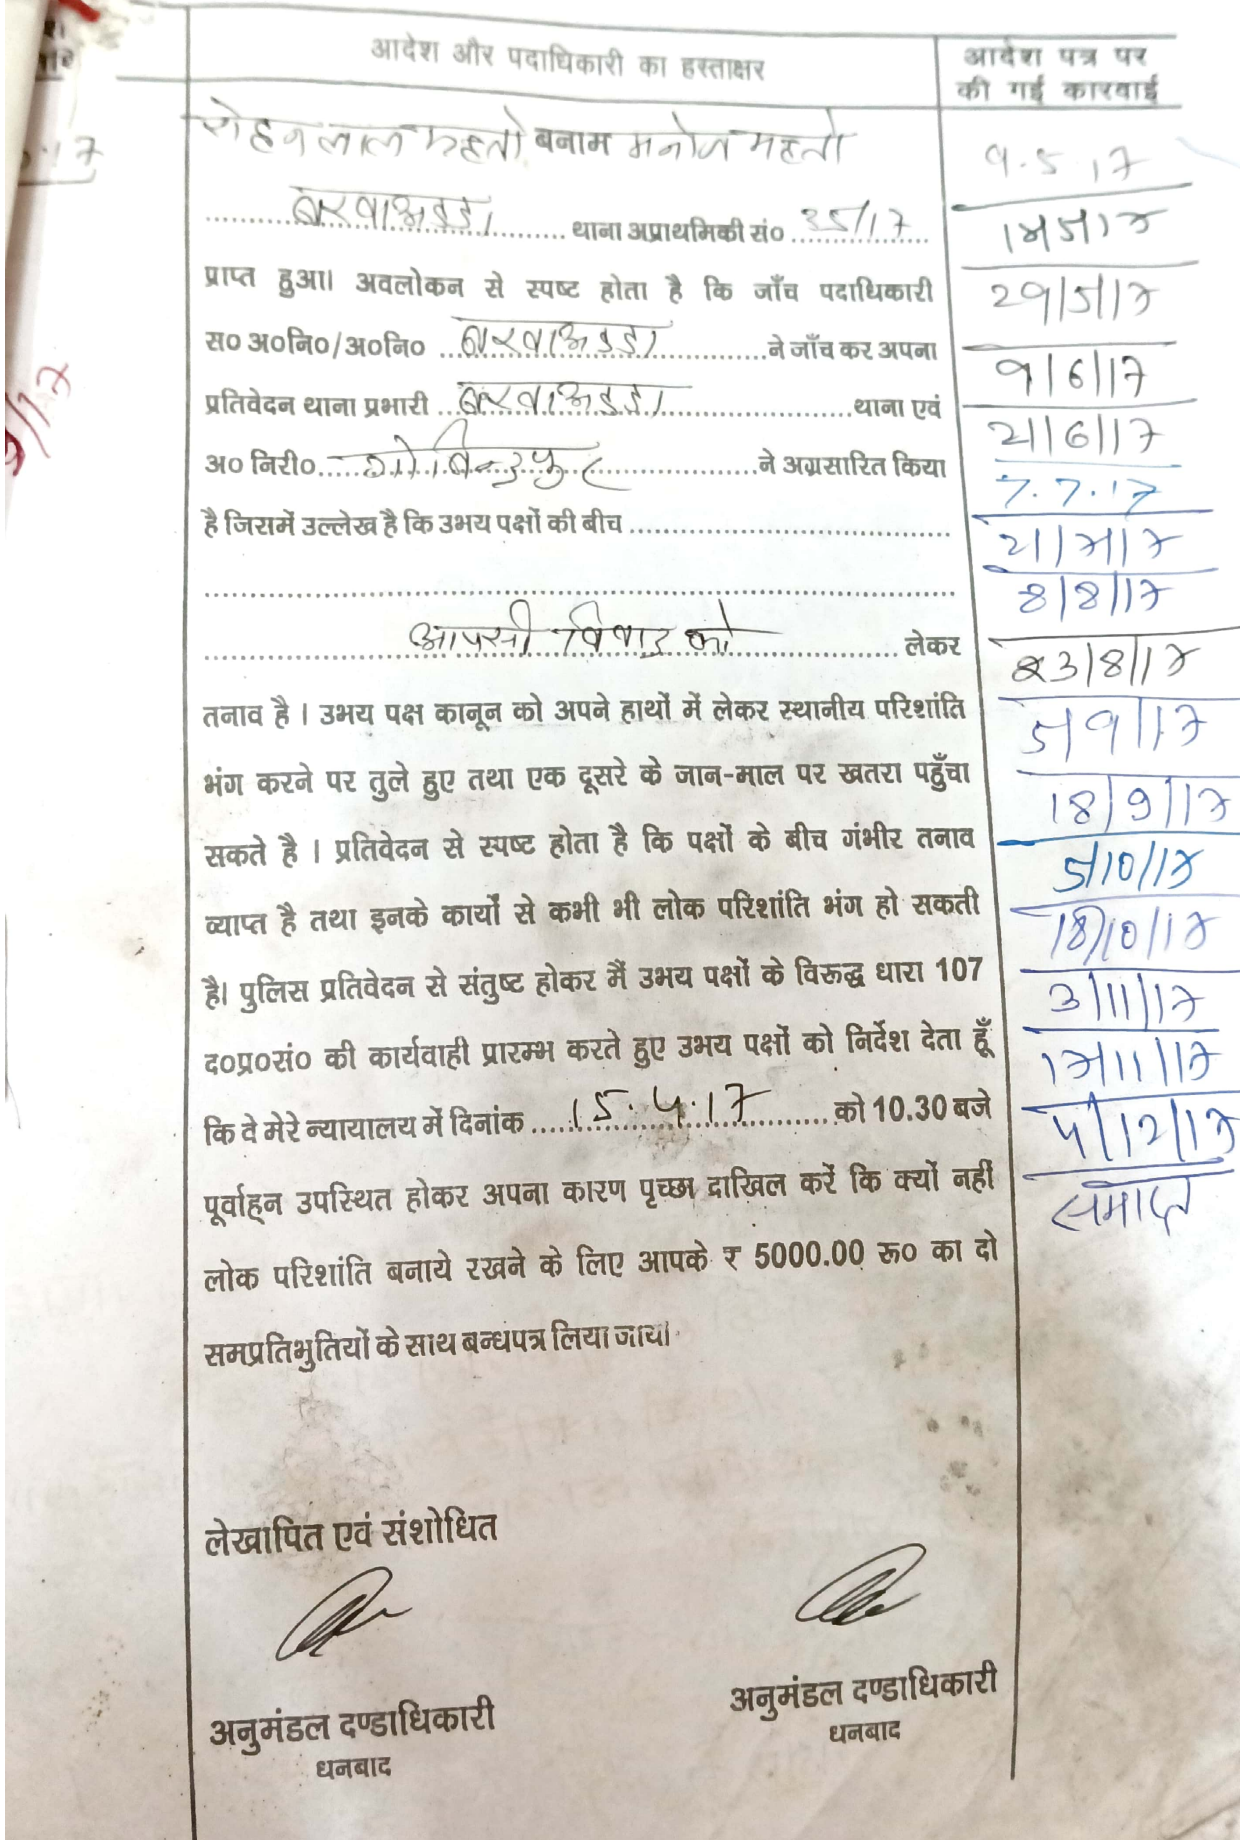 आदेश और पदाधिकारी का हस्ताक्षर
आदेश पत्र पर
की गई कारवाई
लाल महतो बनाम मनोज महतो
बरवाअड्डा थाना अप्राथमिकी सं० 35/17
प्राप्त हुआ। अवलोकन से स्पष्ट होता है कि जाँच पदाधिकारी
स० अ०नि०/अ०नि० बरवाअड्डा ने जाँच कर अपना
प्रतिवेदन थाना प्रभारी बरवाअड्डा थाना एवं
अ० निरी० गोविन्दपुर ने अग्रसारित किया
है जिसमें उल्लेख है कि उभय पक्षों की बीच
आपसी विवाद को लेकर
तनाव है । उभय पक्ष कानून को अपने हाथों में लेकर स्थानीय परिशांति
भंग करने पर तुले हुए तथा एक दूसरे के जान-माल पर खतरा पहुँचा
सकते है । प्रतिवेदन से स्पष्ट होता है कि पक्षों के बीच गंभीर तनाव
व्याप्त है तथा इनके कार्यों से कभी भी लोक परिशांति भंग हो सकती
है। पुलिस प्रतिवेदन से संतुष्ट होकर मैं उभय पक्षों के विरूद्ध धारा 107
द०प्र०सं० की कार्यवाही प्रारम्भ करते हुए उभय पक्षों को निर्देश देता हूँ
कि वे मेरे न्यायालय में दिनांक 15.4.17 को 10.30 बजे
पूर्वाह्न उपस्थित होकर अपना कारण पृच्छा दाखिल करें कि क्यों नहीं
लोक परिशांति बनाये रखने के लिए आपके ₹ 5000.00 रू० का दो
समप्रतिभुतियों के साथ बन्धपत्र लिया जाय।
लेखापित एवं संशोधित
अनुमंडल दण्डाधिकारी
धनबाद
अनुमंडल दण्डाधिकारी
धनबाद
9.5.17
29/5/17
9/6/17
21/6/17
7.7.17
21/7/17
8/8/17
23/8/17
5/9/17
18/9/17
5/10/17
18/10/17
3/11/17
17/11/17
4/12/17
समाप्त